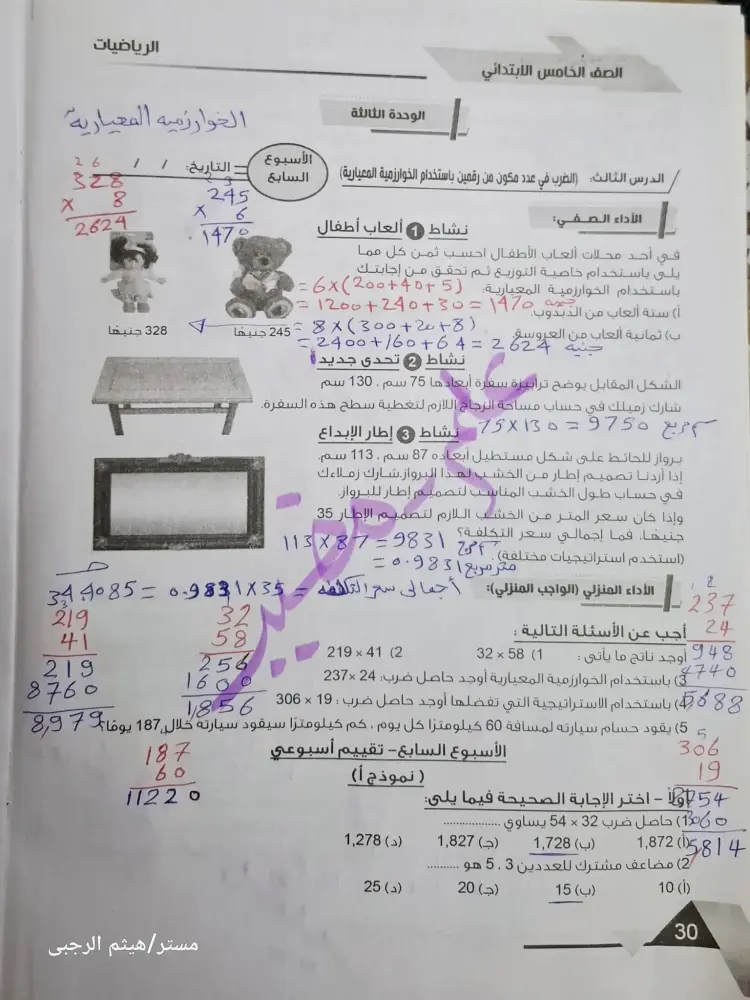 الرياضيات
الصف الخامس الابتدائي
الوحدة الثالثة
الخوارزميه المعياريه
الأسبوع السابع
التاريخ: / /
الدرس الثالث: (الضرب في عدد مكون من رقمين باستخدام الخوارزمية المعيارية)
2 6
328
× 8
2624
2 3
245
× 6
1470
الأداء الصفي:
نشاط 1 ألعاب أطفال
في أحد محلات ألعاب الأطفال احسب ثمن كل مما
يلي باستخدام خاصية التوزيع ثم تحقق من إجابتك
باستخدام الخوارزمية المعيارية.
= 6×(200+40+5)
أ) ستة ألعاب من الدبدوب.
= 1200+240+30 = 1470 جنيه
ب) ثمانية ألعاب من العروسة.
= 8×(300+20+8)
= 2400+160+64 = 2624 جنيه
245 جنيهًا
328 جنيهًا
نشاط 2 تحدى جديد
الشكل المقابل يوضح ترابيزة سفرة أبعادها 75 سم ، 130 سم
شارك زميلك في حساب مساحة الزجاج اللازم لتغطية سطح هذه السفرة.
75×130 = 9750 سم مربع
نشاط 3 إطار الإبداع
برواز للحائط على شكل مستطيل أبعاده 87 سم ، 113 سم.
إذا أردنا تصميم إطار من الخشب لهذا البرواز.شارك زملاءك
في حساب طول الخشب المناسب لتصميم إطار للبرواز.
وإذا كان سعر المتر من الخشب اللازم لتصميم الإطار 35
جنيهًا. فما إجمالي سعر التكلفة؟
113×87 = 9831 سم مربع
(استخدم استراتيجيات مختلفة)
= 0.9831 متر مربع
أجمالى سعر التكلفه = 0.9831×35 = 34.4085
الأداء المنزلي (الواجب المنزلي):
أجب عن الأسئلة التالية :
أوجد ناتج ما يأتى : 1) 58 × 32 2) 41 × 219
3) باستخدام الخوارزمية المعيارية أوجد حاصل ضرب: 24 ×237
4) باستخدام الاستراتيجية التي تفضلها أوجد حاصل ضرب : 19 × 306
5) يقود حسام سيارته لمسافة 60 كيلومترًا كل يوم ، كم كيلومترًا سيقود سيارته خلال 187 يومًا؟
219
41
219
8760
8,979
32
58
256
1600
1856
2
237
24
948
4740
5688
187
60
11220
5
306
19
2754
3060
5814
الأسبوع السابع – تقييم أسبوعي
( نموذج أ )
أولاً – اختر الإجابة الصحيحة فيما يلي:
1) حاصل ضرب 32 × 54 يساوي ..................
(أ) 1,872 (ب) 1,728 (جـ) 1,827 (د) 1,278
2) مضاعف مشترك للعددين 3 ، 5 هو ..........
(أ) 10 (ب) 15 (جـ) 20 (د) 25
30
مستر/هيثم الرجبى